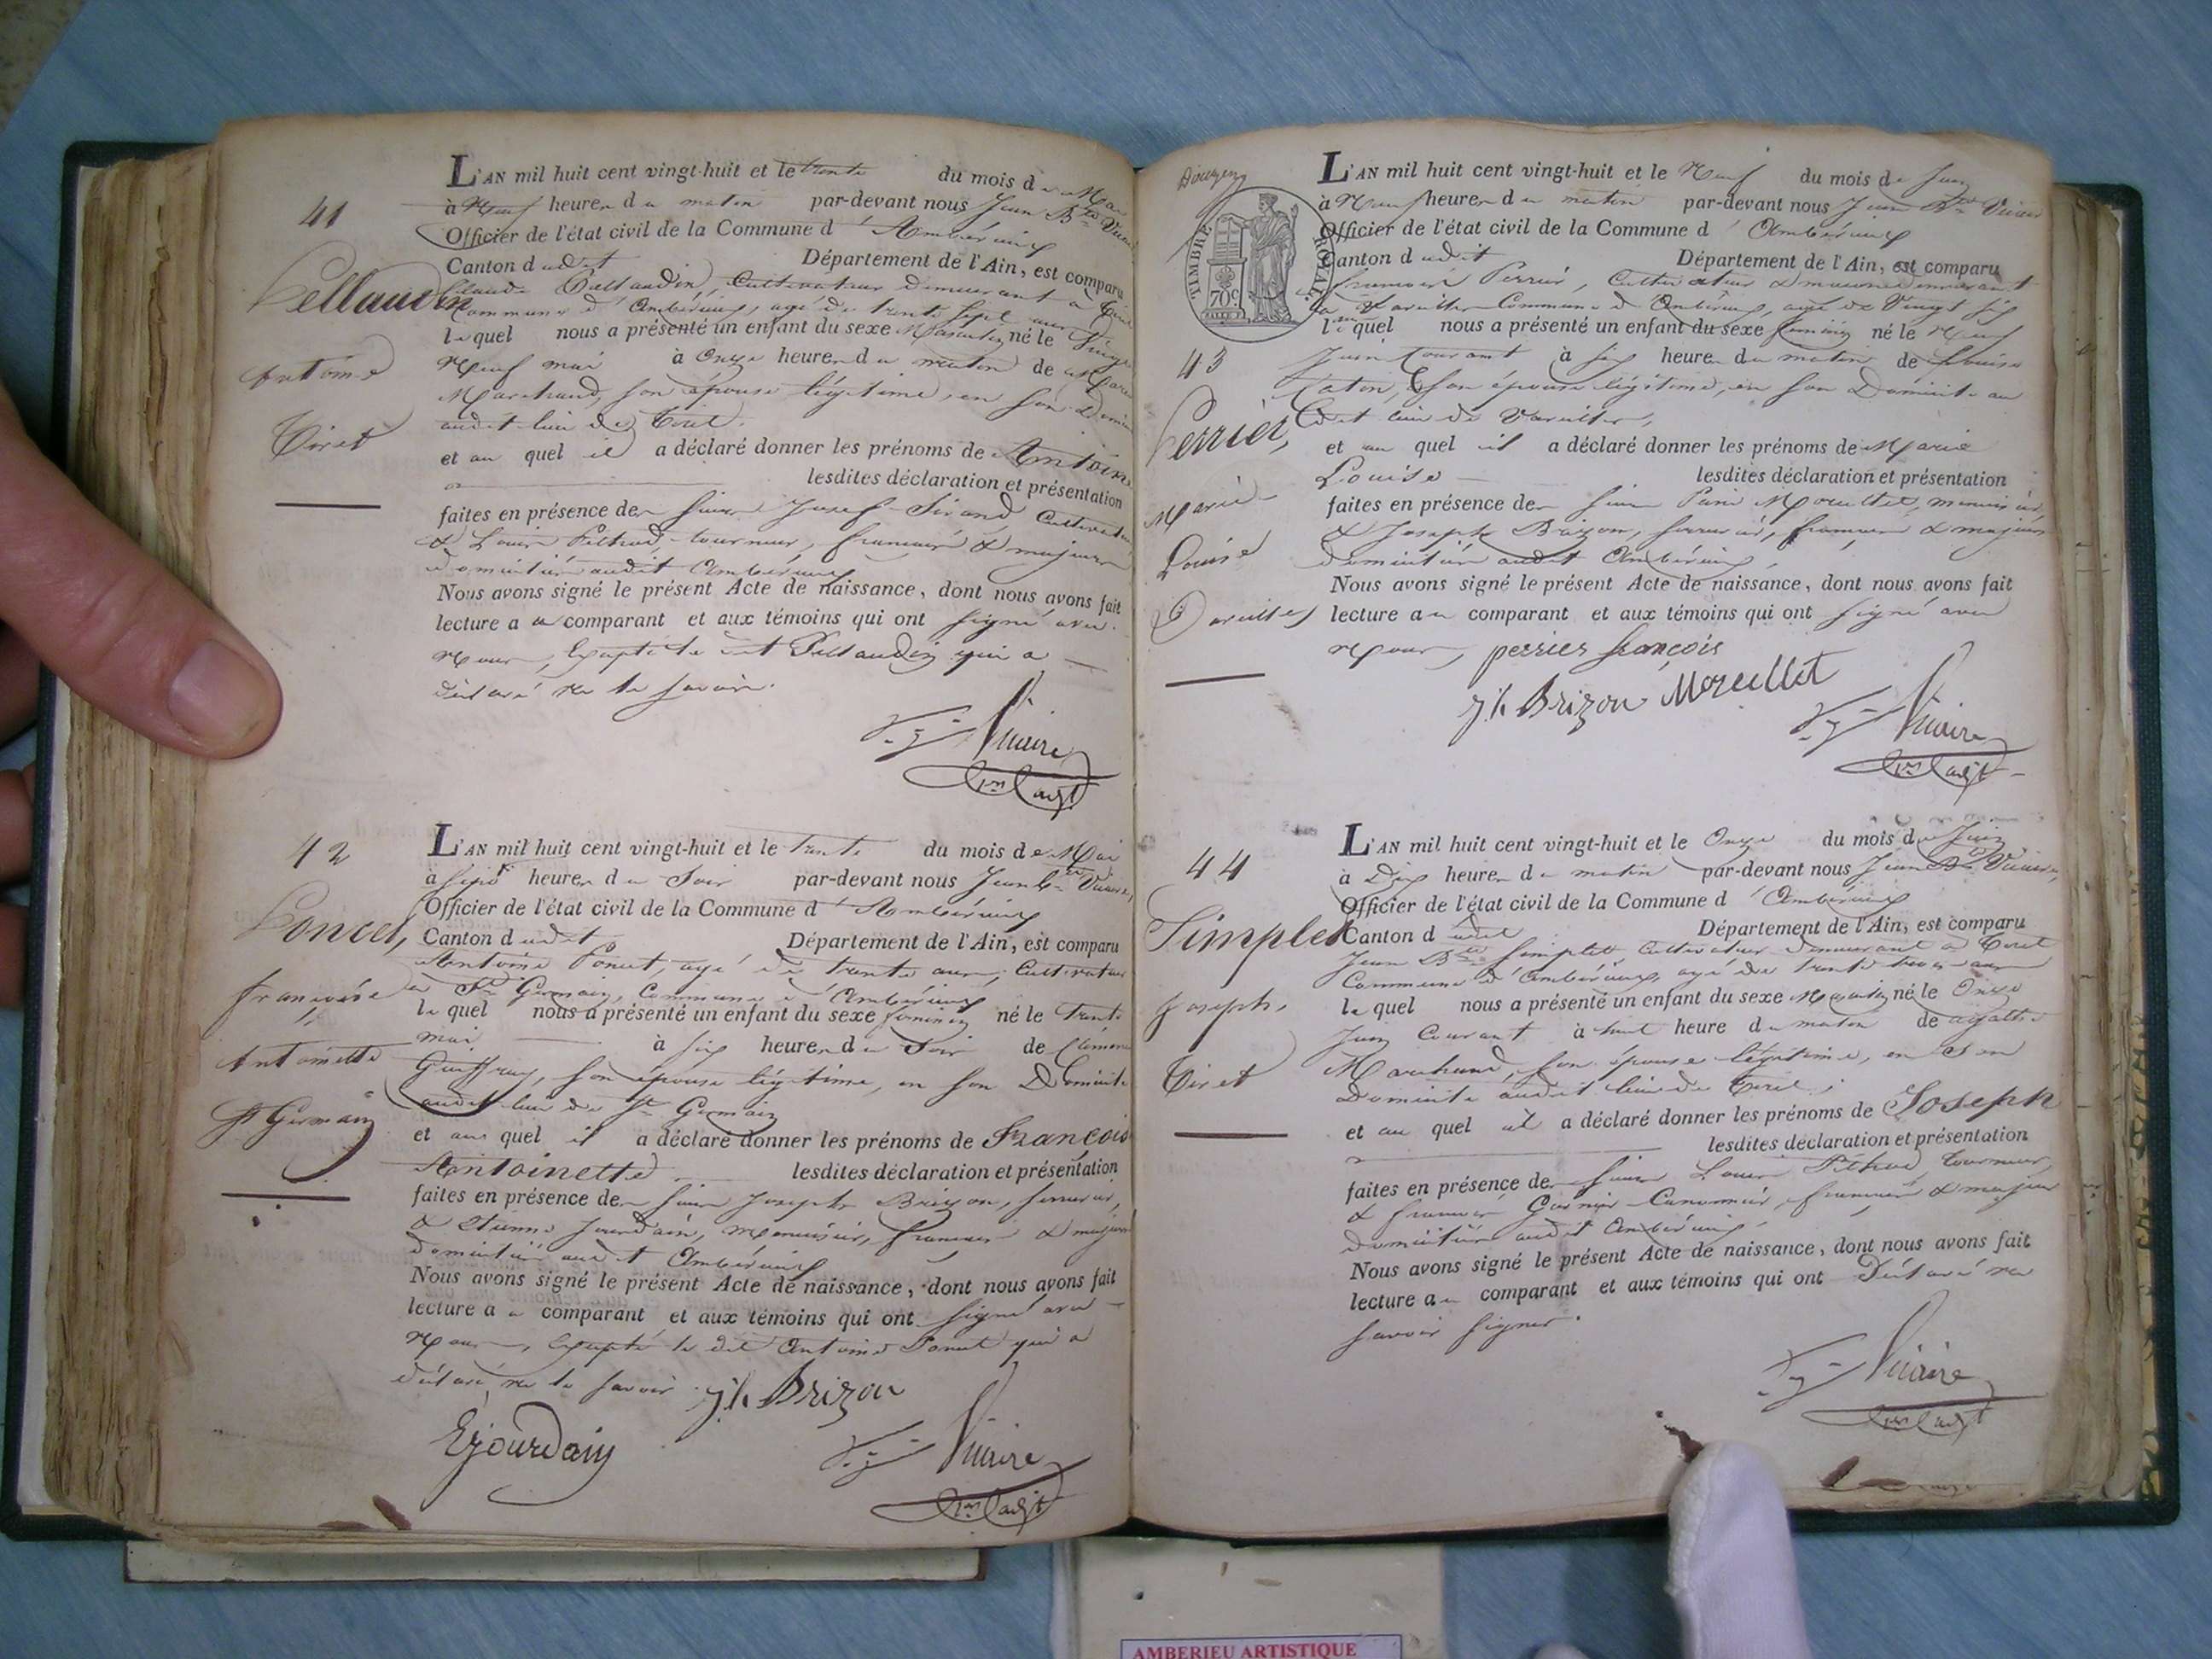 41
Pellaudin
Antoine
Tiret
L'AN mil huit cent vingt-huit et le trente du mois de Mai
à Neuf heures du matin par-devant nous Jean Bte Vicaire
Officier de l'état civil de la Commune d'Ambérieux
Canton dudit Département de l'Ain, est comparu
Claude Pellaudin, Cultivateur demeurant à Tiret
Commune d'Ambérieux, agé de trente sept ans
lequel nous a présenté un enfant du sexe Masculin né le Vingt
Neuf mai à Onze heures du matin de Marie
Marchand, son épouse légitime, en son Domicile
audit lieu de Tiret.
et auquel il a déclaré donner les prénoms de Antoine
lesdites déclaration et présentation
faites en présence des sieurs Josef Sirand Cultivateur
& Louis Péthud, tourneur, français & majeurs
domiciliés audit Ambérieux
Nous avons signé le présent Acte de naissance, dont nous avons fait
lecture au comparant et aux témoins qui ont signé avec
Nous, Excepté le dit Pellaudin qui a
déclaré ne le savoir.
Vicaire
42
Poncet,
françoise
Antoinette
St Germain
L'AN mil huit cent vingt-huit et le trente du mois de Mai
à sept heures du Soir par-devant nous Jean Bte Vicaire,
Officier de l'état civil de la Commune d'Ambérieux
Canton dudit Département de l'Ain, est comparu
Antoine Poncet, agé de trente ans, Cultivateur
à St Germain, Commune d'Ambérieux
lequel nous a présenté un enfant du sexe féminin né le trente
mai à six heures du Soir de
Guiffray, son épouse légitime, en son Domicile
audit lieu de St Germain
et auquel il a déclaré donner les prénoms de Françoise
Antoinette lesdites déclaration et présentation
faites en présence des sieurs Joseph Brizon, serrurier,
& Etienne Jourdain, Menuisier, français & majeurs
domiciliés audit Ambérieux
Nous avons signé le présent Acte de naissance, dont nous avons fait
lecture au comparant et aux témoins qui ont signé avec
Nous, Excepté le dit Antoine Poncet qui a
déclaré ne le savoir.
Jh Brizon
EJourdain
Vicaire
TIMBRE ROYAL
70c
43
Perrier,
Marie
Louise
Vareilles
L'AN mil huit cent vingt-huit et le Neuf du mois de Juin
à Neuf heures du matin par-devant nous Jean Bte Vicaire
Officier de l'état civil de la Commune d'Ambérieux
Canton dudit Département de l'Ain, est comparu
françois Perrier, Cultivateur demeurant
à Vareilles Commune d'Ambérieux, agé de Vingt six
ans lequel nous a présenté un enfant du sexe féminin né le Neuf
Juin Courant à six heures du matin de Louise
son épouse légitime, en son Domicile au
dit lieu de Vareilles,
et auquel il a déclaré donner les prénoms de Marie
Louise lesdites déclaration et présentation
faites en présence des sieurs Morellet, menuisier,
& Joseph Brizon, serrurier, français & majeurs
domiciliés audit Ambérieux,
Nous avons signé le présent Acte de naissance, dont nous avons fait
lecture au comparant et aux témoins qui ont signé avec
Nous, perrier françois
Jh Brizon Morellet
Vicaire
44
Simplet
Joseph,
Tiret
L'AN mil huit cent vingt-huit et le Onze du mois de Juin
à Dix heures du matin par-devant nous Jean Bte Vicaire,
Officier de l'état civil de la Commune d'Ambérieux
Canton dudit Département de l'Ain, est comparu
Jean Bte Simplet, Cultivateur demeurant à Tiret
Commune d'Ambérieux, agé de trente trois ans
lequel nous a présenté un enfant du sexe Masculin né le Onze
Juin Courant à huit heure du matin de agathe
Marchand, son épouse légitime, en son
Domicile audit lieu de Tiret;
et auquel il a déclaré donner les prénoms de Joseph
lesdites déclaration et présentation
faites en présence des sieurs Louis Péthud, tourneur,
& françois Garnier Cantonnier, français & majeurs
domiciliés audit Ambérieux,
Nous avons signé le présent Acte de naissance, dont nous avons fait
lecture au comparant et aux témoins qui ont Déclaré ne
savoir signer.
Vicaire
AMBERIEU ARTISTIQUE